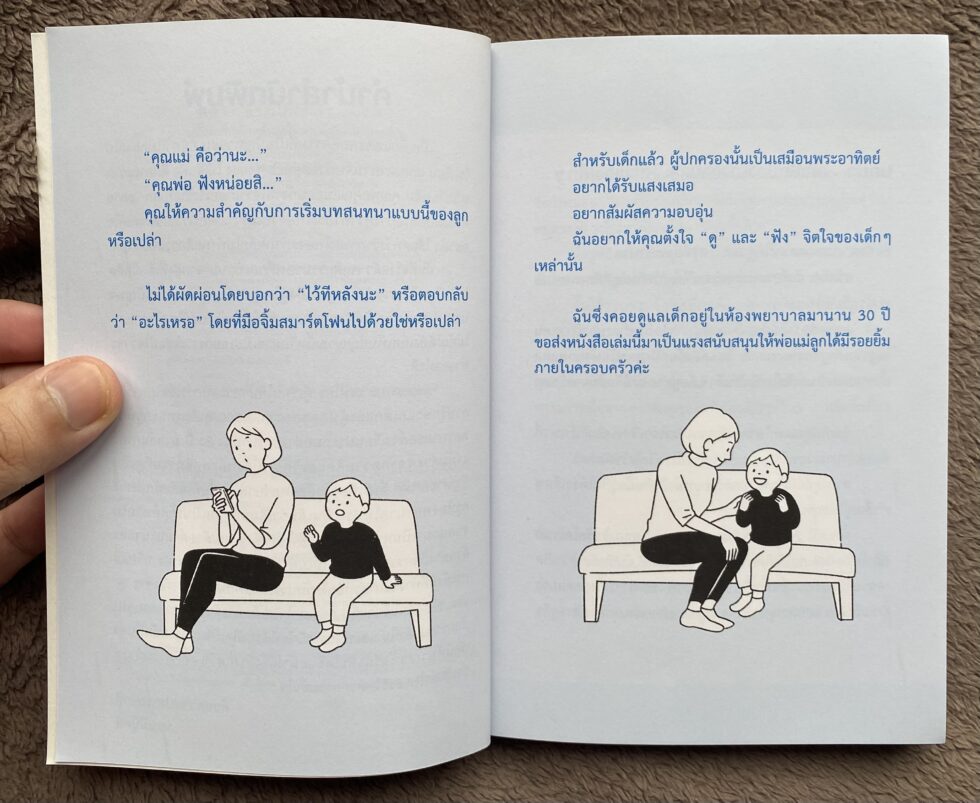 “คุณแม่ คือว่านะ...”
“คุณพ่อ ฟังหน่อยสิ...”
คุณให้ความสำคัญกับการเริ่มบทสนทนาแบบนี้ของลูก
หรือเปล่า
ไม่ได้ผัดผ่อนโดยบอกว่า “ไว้ทีหลังนะ” หรือตอบกลับ
ว่า “อะไรเหรอ” โดยที่มือจิ้มสมาร์ตโฟนไปด้วยใช่หรือเปล่า
สำหรับเด็กแล้ว ผู้ปกครองนั้นเป็นเสมือนพระอาทิตย์
อยากได้รับแสงเสมอ
อยากสัมผัสความอบอุ่น
ฉันอยากให้คุณตั้งใจ “ดู” และ “ฟัง” จิตใจของเด็กๆ
เหล่านั้น
ฉันซึ่งคอยดูแลเด็กอยู่ในห้องพยาบาลมานาน 30 ปี
ขอส่งหนังสือเล่มนี้มาเป็นแรงสนับสนุนให้พ่อแม่ลูกได้มีรอยยิ้ม
ภายในครอบครัวค่ะ